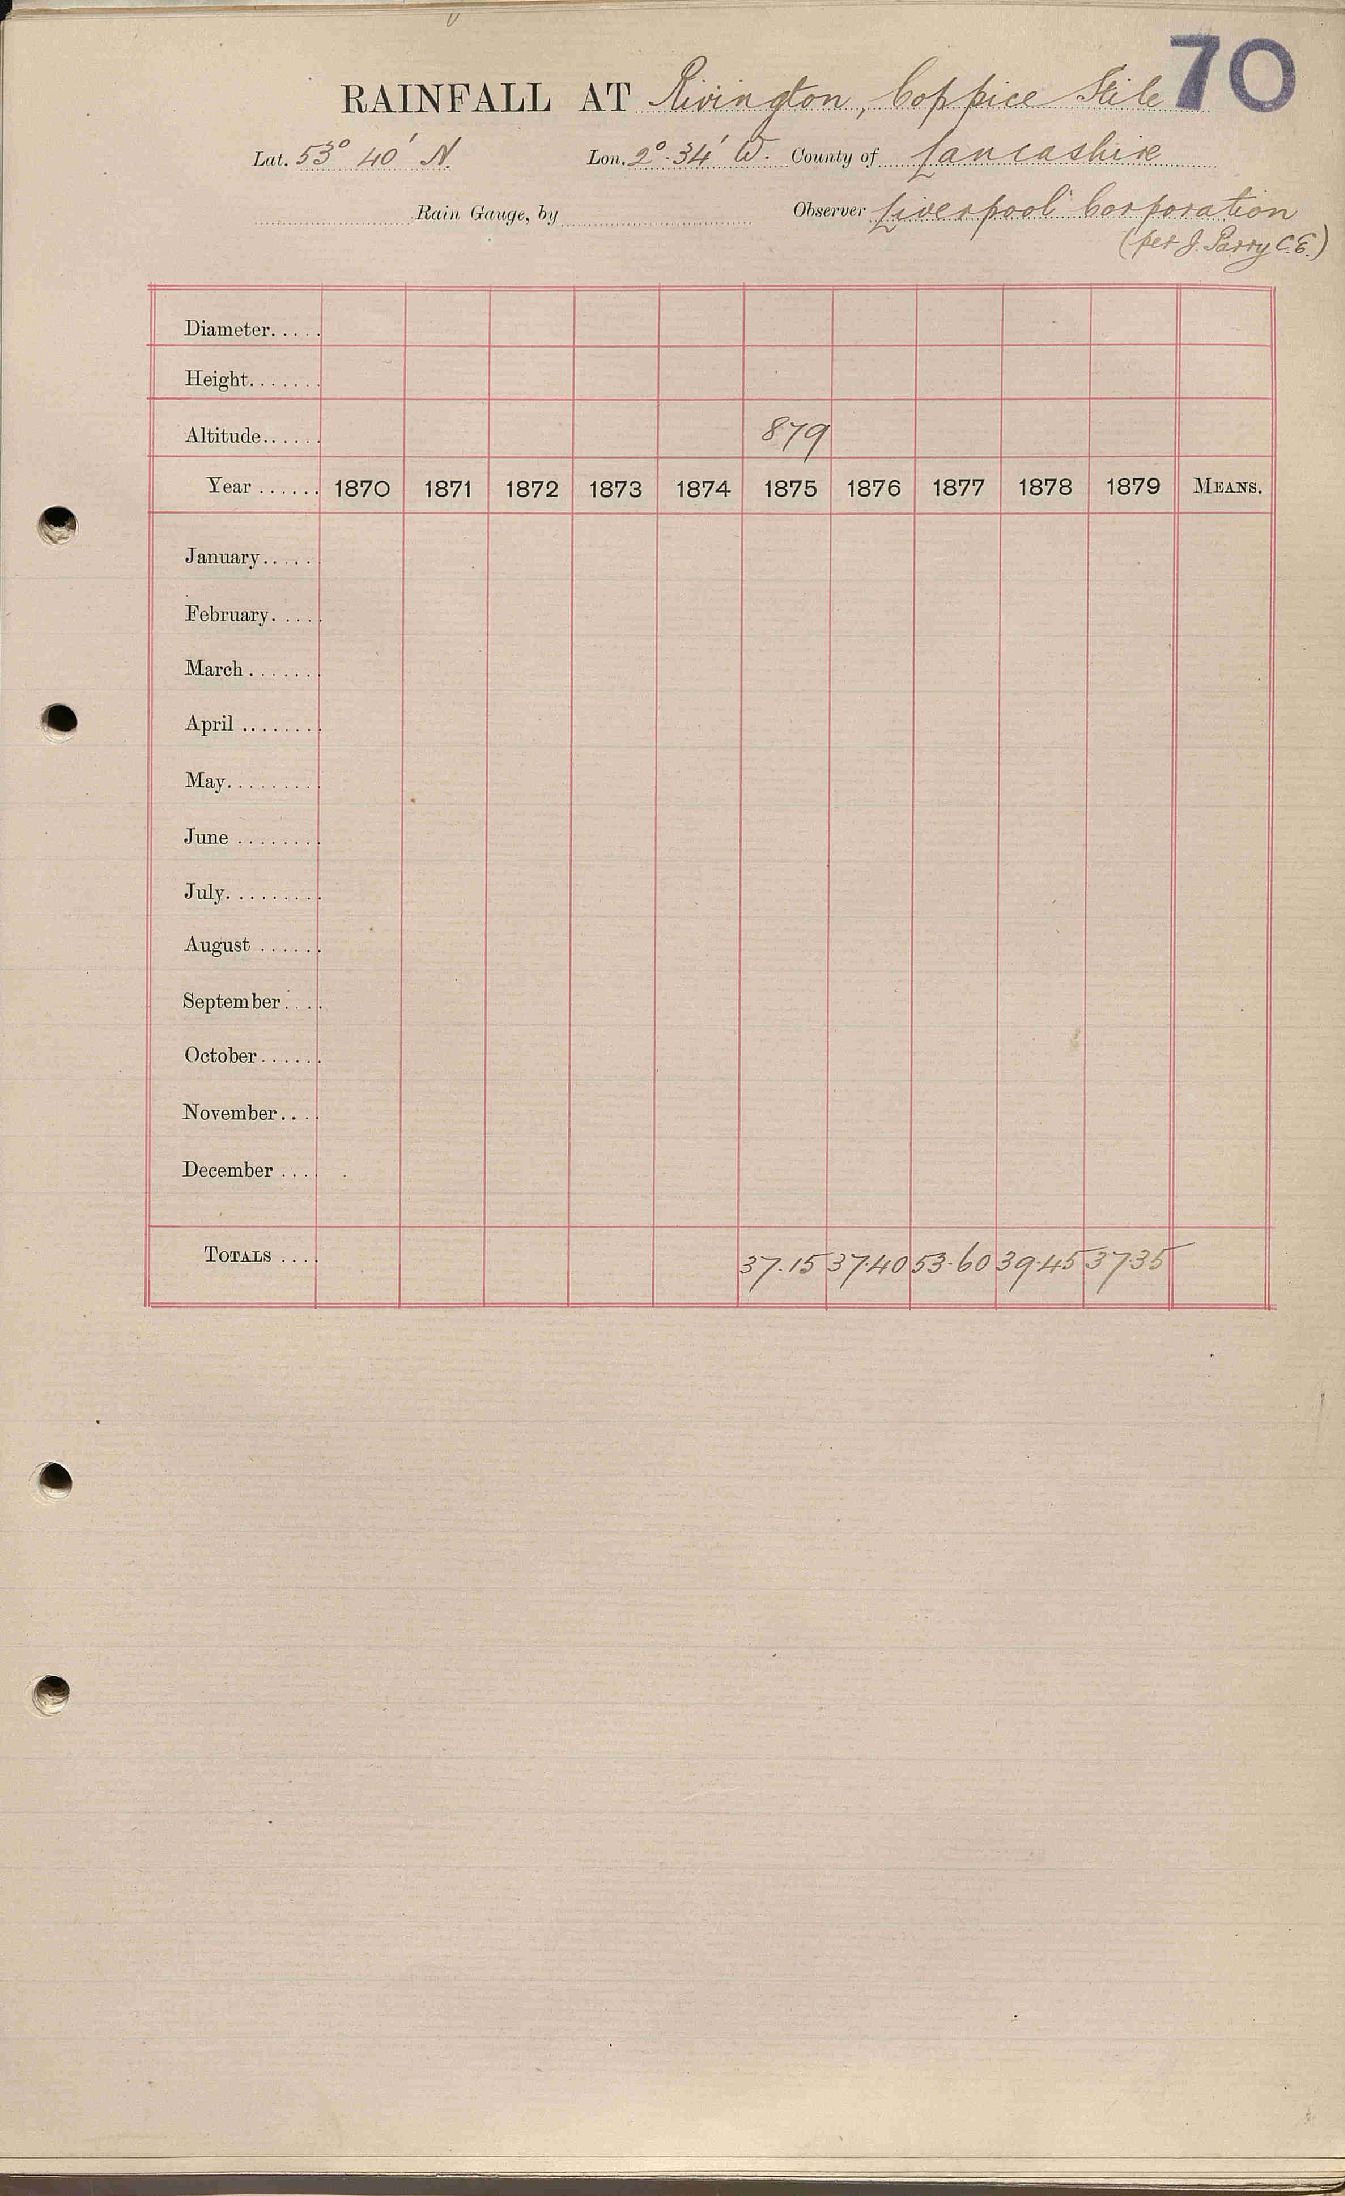 70
RAINFALL AT Rivington, Coppice Stile
Lat. 53° 40' N. Lon. 2°. 34' W. County of Lancashire
Rain Gauge, by Observer Liverpool Corporation
(per J. Parry C.E.)
Diameter.....
Height.......
Altitude...... 879
Year ...... 1870 1871 1872 1873 1874 1875 1876 1877 1878 1879 MEANS.
January.....
February.....
March.......
April ........
May.........
June ........
July.........
August ......
September....
October......
November....
December ....
TOTALS .... 37.15 37.40 53.60 39.45 37.35